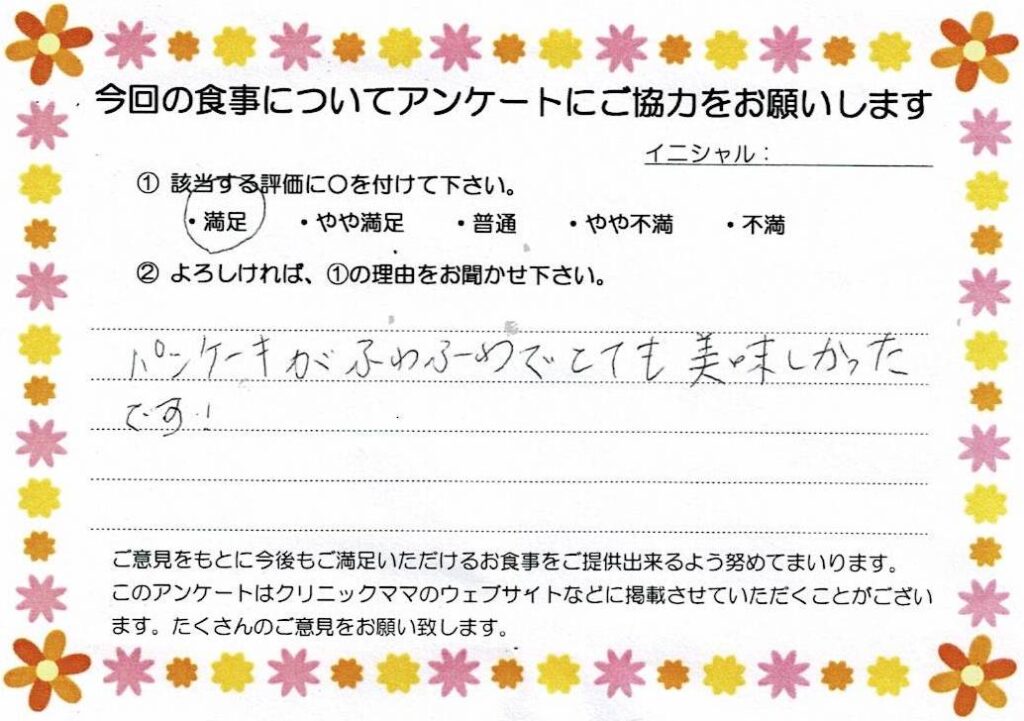 今回の食事についてアンケートにご協力をお願いします
イニシャル：
① 該当する評価に〇を付けて下さい。
・満足 ・やや満足 ・普通 ・やや不満 ・不満
② よろしければ、①の理由をお聞かせ下さい。
パンケーキがふわふわでとても美味しかった
です！
ご意見をもとに今後もご満足いただけるお食事をご提供出来るよう努めてまいります。
このアンケートはクリニックママのウェブサイトなどに掲載させていただくことがござい
ます。たくさんのご意見をお願い致します。